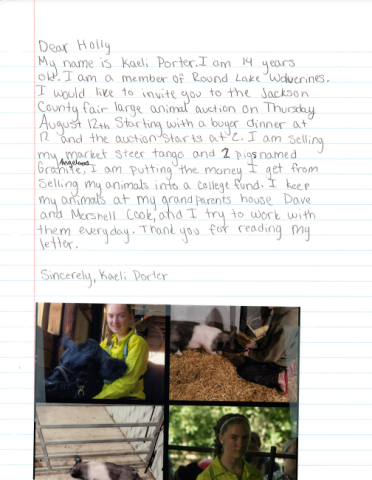 Dear Holly
My name is Kaeli Porter. I am 14 years
old. I am a member of Round Lake Wolverines.
I would like to invite you to the Jackson
County fair large animal auction on Thursday
August 12th Starting with a buyer dinner at
12 and the auction starts at 2. I am selling
my market steer tango and 2 pigs named
Angelena
Granite, I am putting the money I get from
Selling my animals into a college fund. I keep
my animals at my grandparents house Dave
and Mershell Cook, and I try to work with
them everyday. Thank you for reading my
letter.
Sincerely, Kaeli Porter